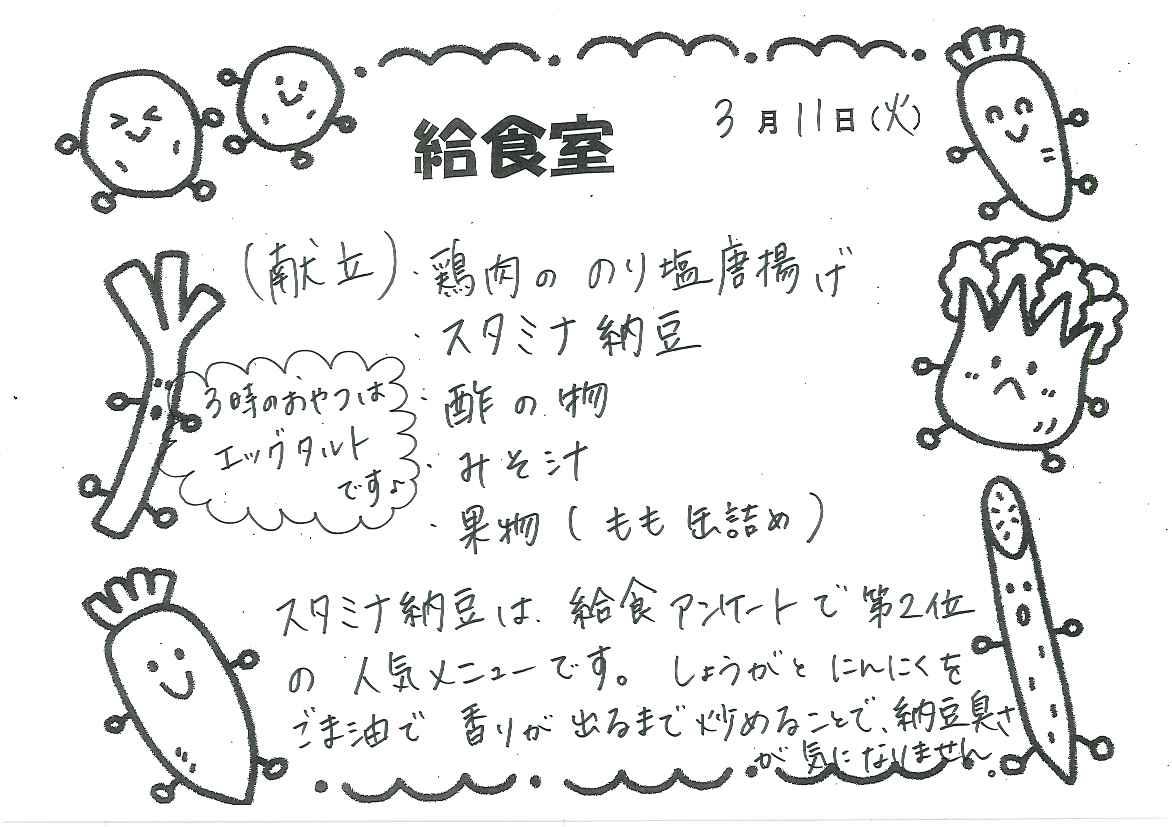 給食室
3月11日(火)
(献立)・鶏肉の のり塩唐揚げ
・スタミナ納豆
・酢の物
・みそ汁
・果物(もも缶詰め)
3時のおやつは
エッグタルト
です♪
スタミナ納豆は、給食アンケートで第2位
の人気メニューです。しょうがとにんにくを
ごま油で香りが出るまで炒めることで、納豆臭さ
が気になりません。